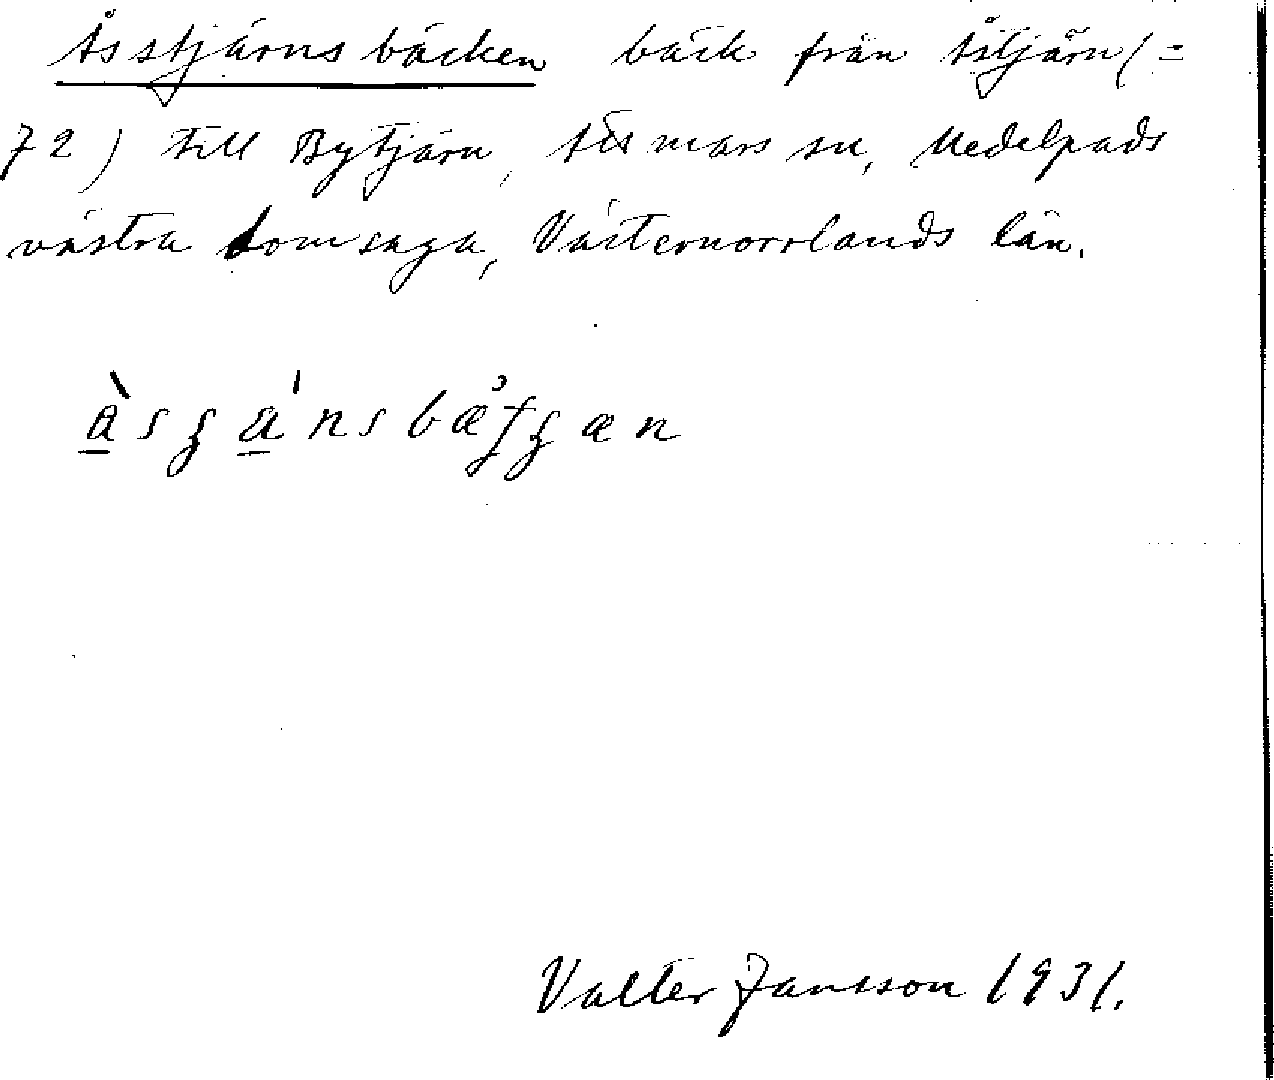 Åsstjärnsbäcken bäck från Åstjärn (=
72) till Bytjärn, Attmars sn, Medelpads
västra domsaga, Västernorrlands län.
Valter Jansson 1931.